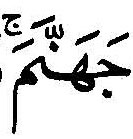 جَهَنَّمَ ۚ